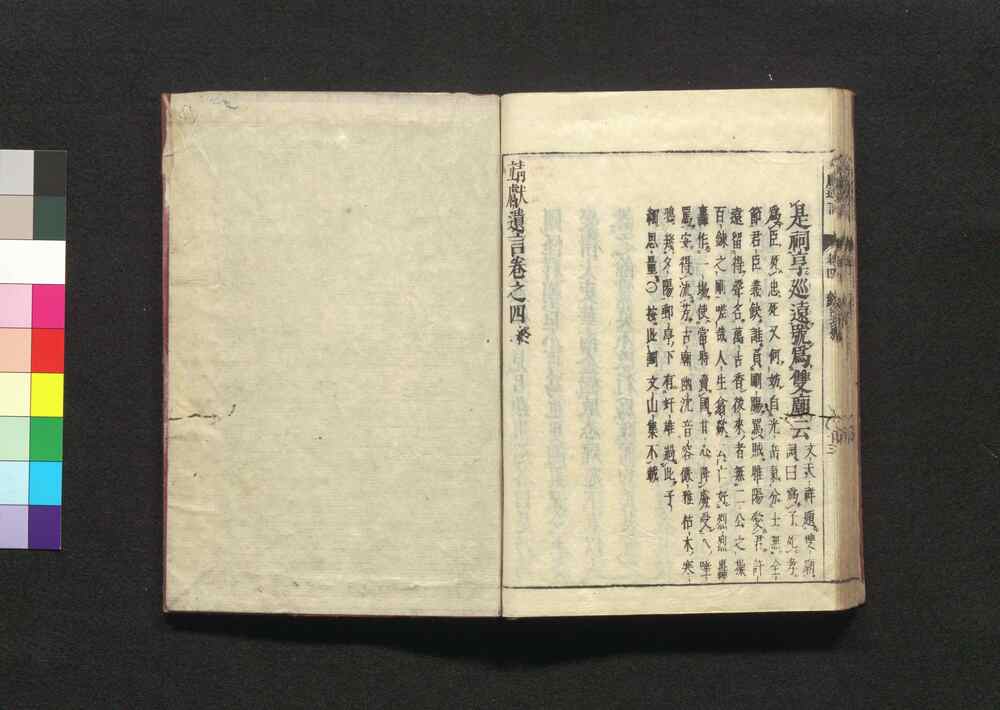 是祠享巡遠號爲雙廟云 文天祥題雙廟
詞曰爲子死孝
爲臣死忠死又何妨自光岳氣分士無全
節君臣義缺誰負剛腸罵賊睢陽愛君許
遠留得聲名萬古香後來者無二公之操
百鍊之剛嗟哉人生翕歘云亡好烈烈轟
轟作一塲使當時賣國甘心降虜受人唾
罵安得流芳古廟幽沈音容儼雅枯木寒
鴉幾夕陽郵亭下有奸雄過此子
細思量○按此詞文山集不載
靖獻遺言卷之四終